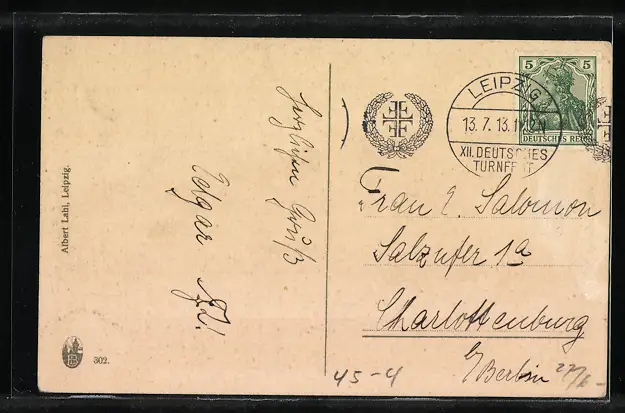 Albert Lahl, Leipzig.
302.
Herzlichen Gruß
Edgar
LEIPZIG
13.7.13.
XII. DEUTSCHES
TURNFEST
5 5
DEUTSCHES REICH
Frau E. Salomon
Salzufer 1a
Charlottenburg
b/Berlin
45-4